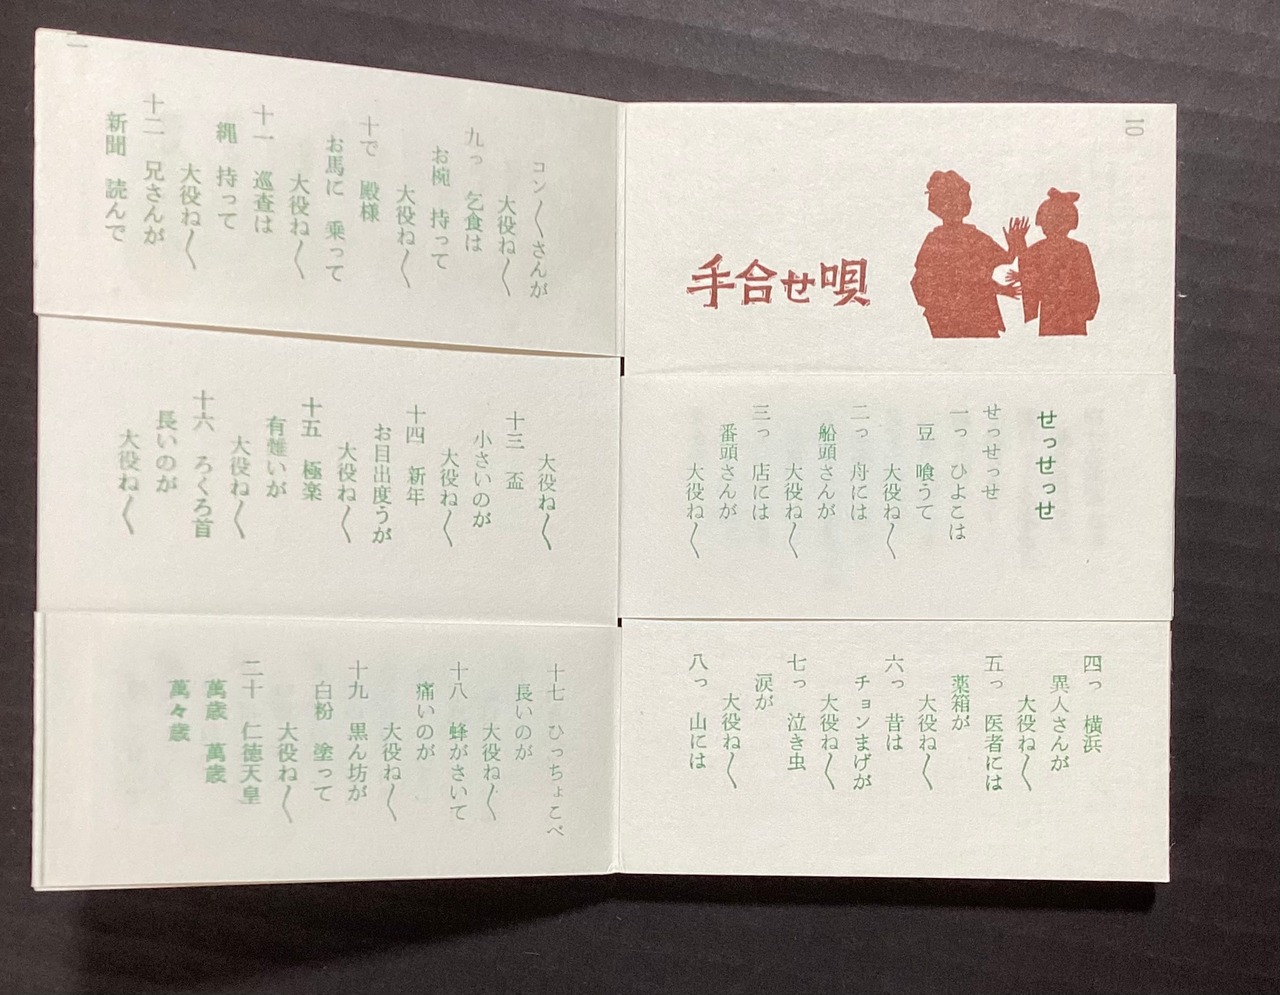 10
手合せ唄
せっせっせ
せっせっせ
一っ ひよこは
豆 喰うて
大役ね〱
二っ 舟には
船頭さんが
大役ね〱
三っ 店には
番頭さんが
大役ね〱
四っ 横浜
異人さんが
大役ね〱
五っ 医者には
薬箱が
大役ね〱
六っ 昔は
チョンまげが
大役ね〱
七っ 泣き虫
涙が
大役ね〱
八っ 山には
コン〱さんが
大役ね〱
九っ 乞食は
お椀 持って
大役ね〱
十で 殿様
お馬に 乗って
大役ね〱
十一 巡査は
縄 持って
大役ね〱
十二 兄さんが
新聞 読んで
大役ね〱
十三 盃
小さいのが
大役ね〱
十四 新年
お目出度うが
大役ね〱
十五 極楽
有難いが
大役ね〱
十六 ろくろ首
長いのが
大役ね〱
十七 ひっちょこべ
長いのが
大役ね〱
十八 蜂がさいて
痛いのが
大役ね〱
十九 黒ん坊が
白粉 塗って
大役ね〱
二十 仁徳天皇
萬歳 萬歳
萬々歳